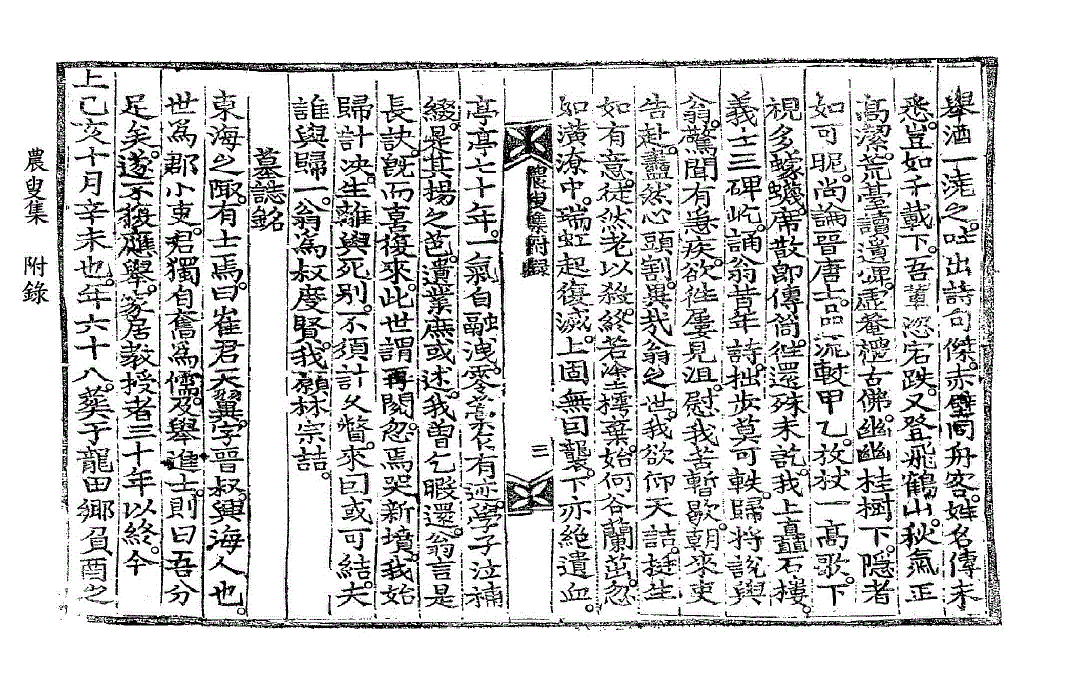 舉酒一澆之。吐出詩句傑。赤壁同舟客。姓名傳未
悉。豈如千載下。吾輩恣宕跌。又登飛鶴山。秋氣正
高潔。荒臺讀遺碑。虛菴禮古佛。幽幽桂樹下。隱者
如可昵。尚論晉唐士。品流較甲乙。放杖一高歌。下
視多蠛蠓。席散卽傳筒。徃還殊未訖。我上矗石樓。
義士三碑屹。誦翁昔年詩。拙步莫可軼。歸將說與
翁。驚聞有惡疾。欲徃屢見沮。慰我苦暫歇。朝來吏
告赴。衋然心頭割。異哉翁之世。我欲仰天詰。挺生
如有意。徒然老以殺。終若塗樗棄。始何谷蘭茁。忽
如潢潦中。瑞虹起復滅。上固無曰襲。下亦絶遺血。
農叟集附錄
三
亭亭七十年。一氣自融洩。零箋不有述。學子泣補
綴。是其揚之芭。遺業庶或述。我曾乞暇還。翁言是
長訣。旣而喜復來。此世謂再閱。忽焉哭新墳。我始
歸計决。生離與死別。不須計久暫。來因或可結。夫
誰與歸一。翁爲叔度賢。我願林宗詰。
墓誌銘
東海之陬。有士焉。曰崔君天翼。字晉叔。興海人也。
世爲郡小吏。君獨自奮爲儒。及舉進士。則曰吾分
足矣。遂不復應舉。家居教授者三十年以終。今
上己亥十月辛未也。年六十八。葬于龍田鄉負酉之
農叟集　附錄